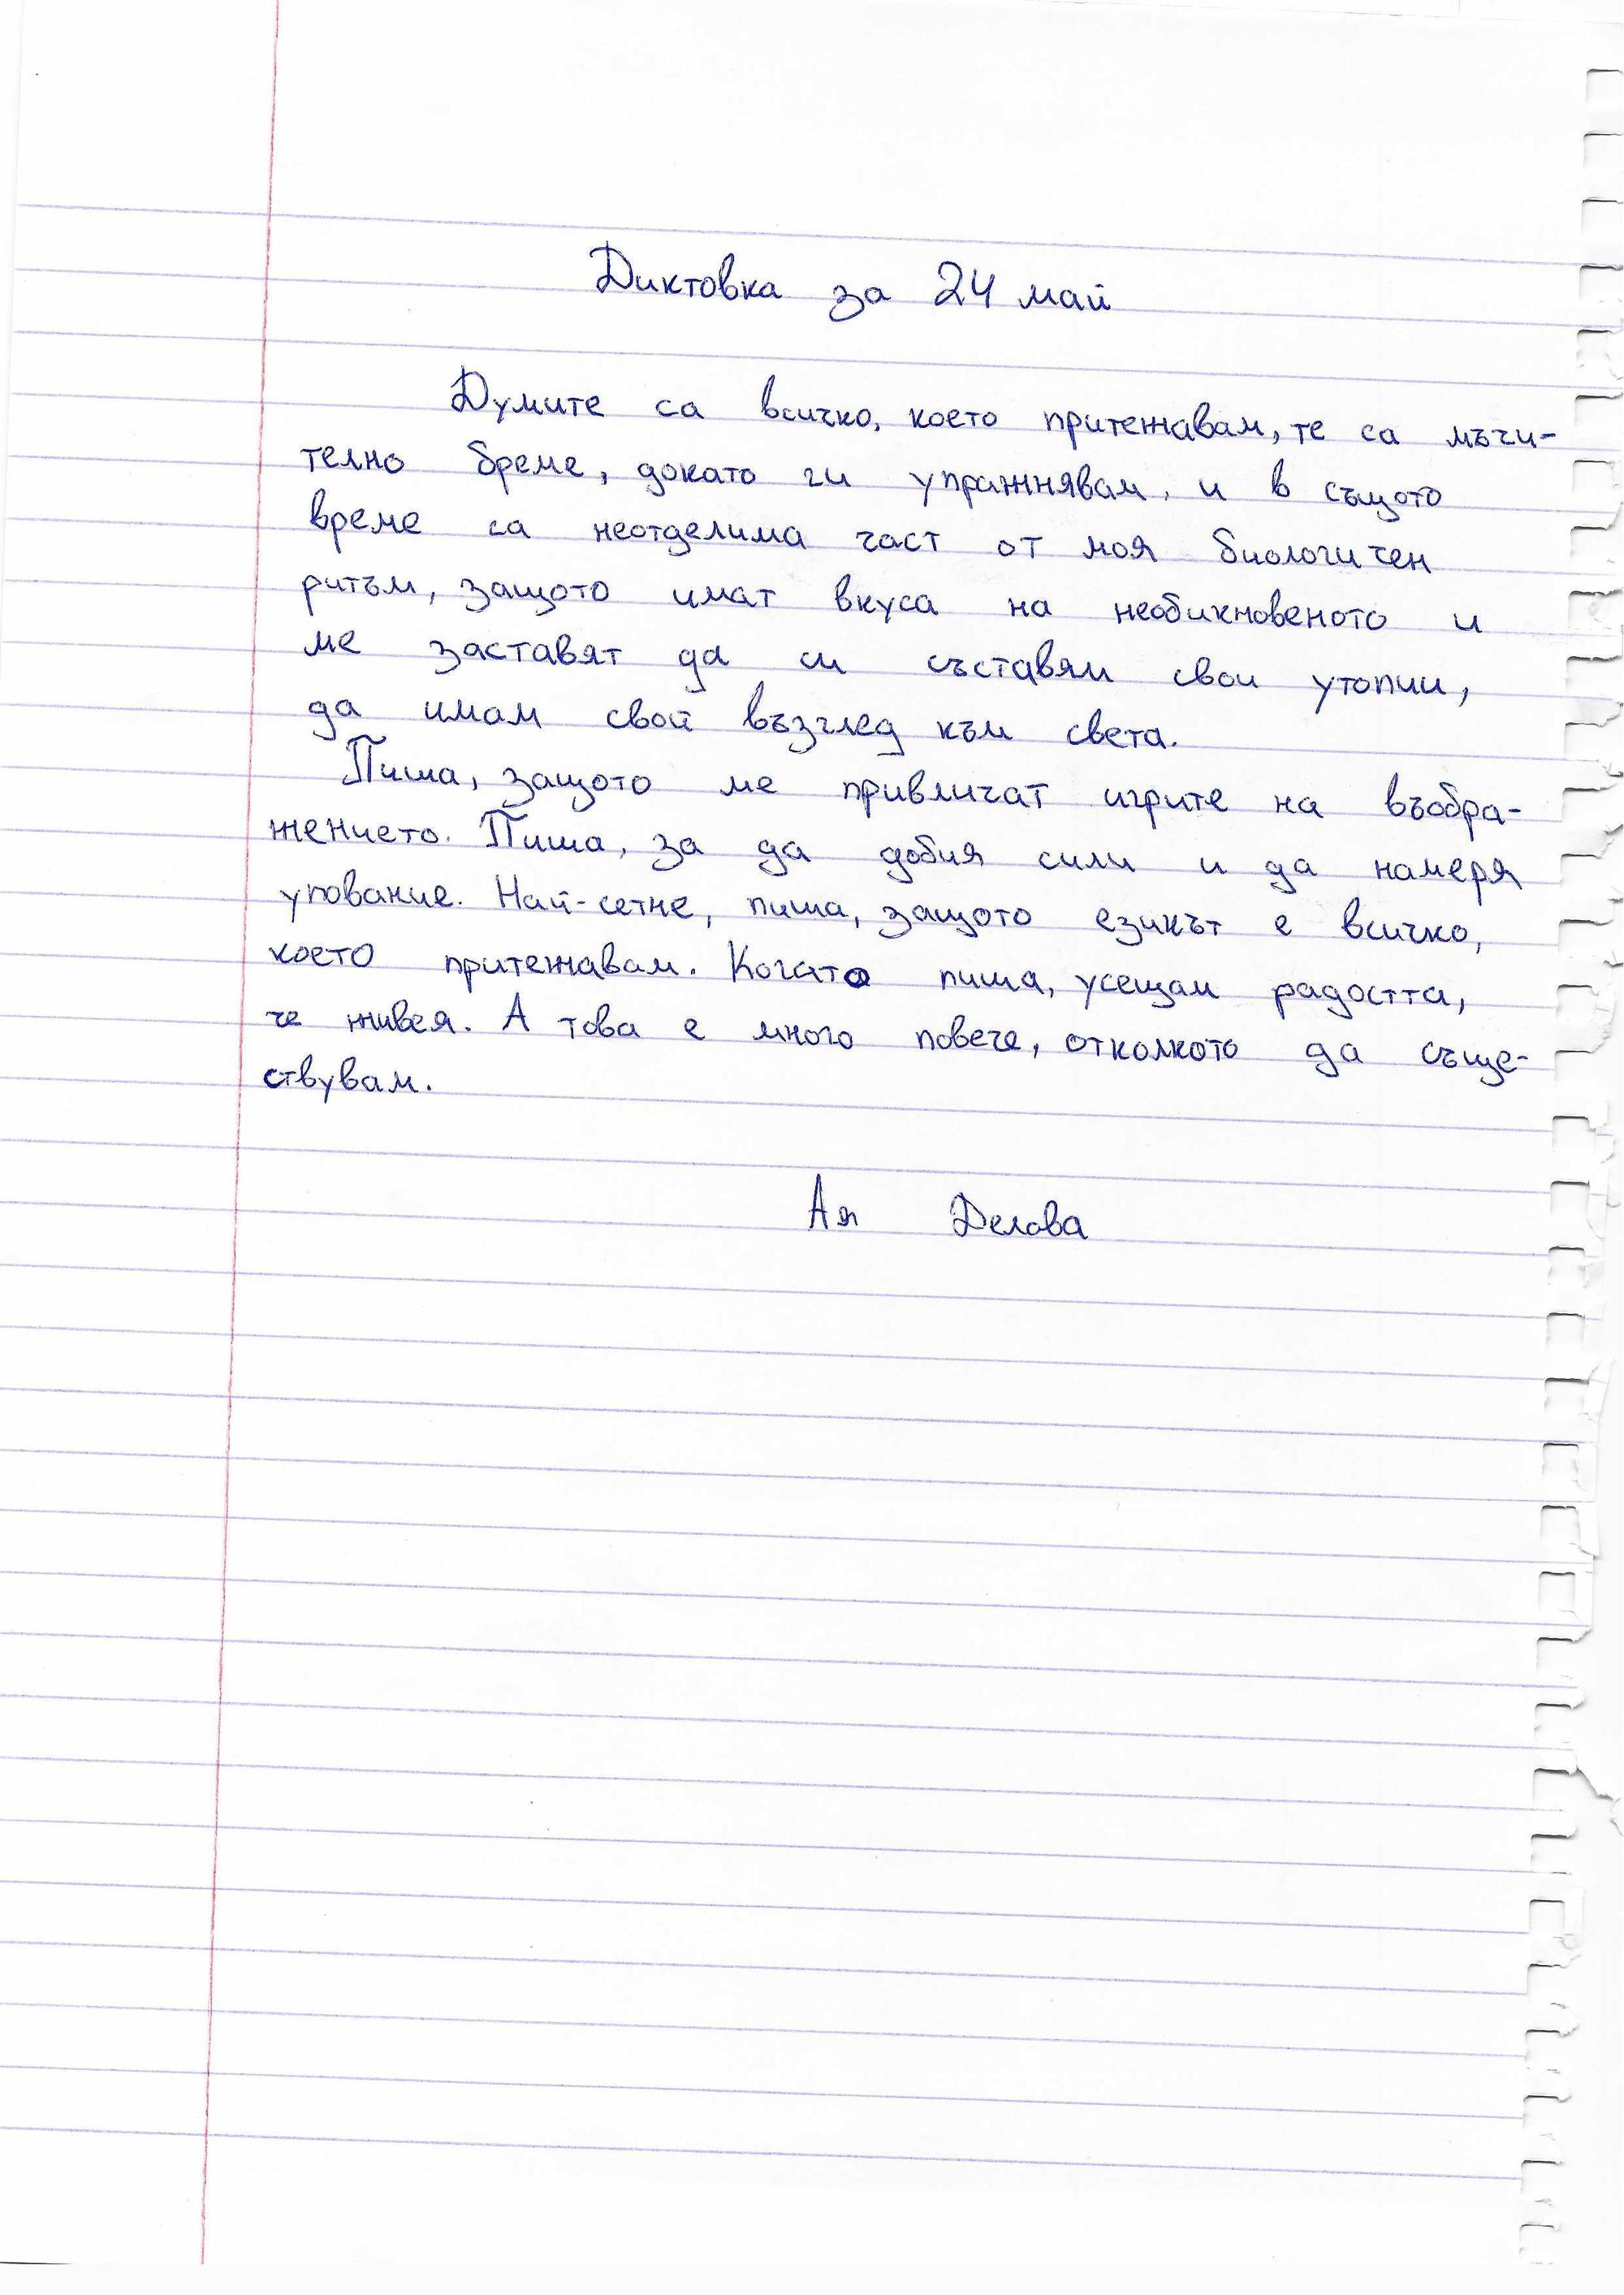 Диктовка за 24 май
Думите са всичко, което притежавам, те са мъчи-
телно бреме, докато ги упражнявам, и в същото
време са неотделима част от моя биологичен
ритъм, защото имат вкуса на необикновеното и
ме заставят да си съставям свои утопии,
да имам свой възглед към света.
Пиша, защото ме привличат игрите на въобра-
жението. Пиша, за да добия сили и да намеря
упование. Най-сетне, пиша, защото езикът е всичко,
което притежавам. Когато пиша, усещам радостта,
че живея. А това е много повече, отколкото да съще-
ствувам.
Ая Делова